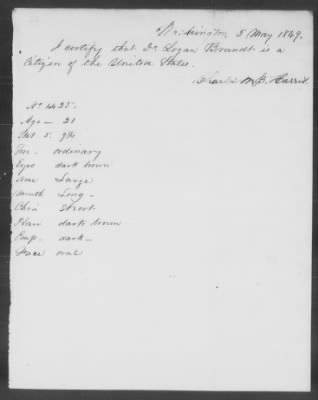 Washington, 5 May 1849.
I certify that Dr. Logan Brandt is a
Citizen of the United States.
Charles M. B. Harris
No 4425.
Age — 21
Feet 5. 9¼
Fore. ordinary
Eyes dark brown
nose Large
mouth Long —
Chin Short
Hair dark brown
Comp. dark —
Face oval